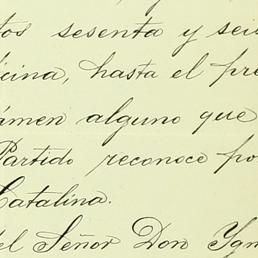 tos sesenta y seis
icina, hasta el pre
ámen alguno que
Partido reconoce po
Catalina.
del Señor Don Ygn